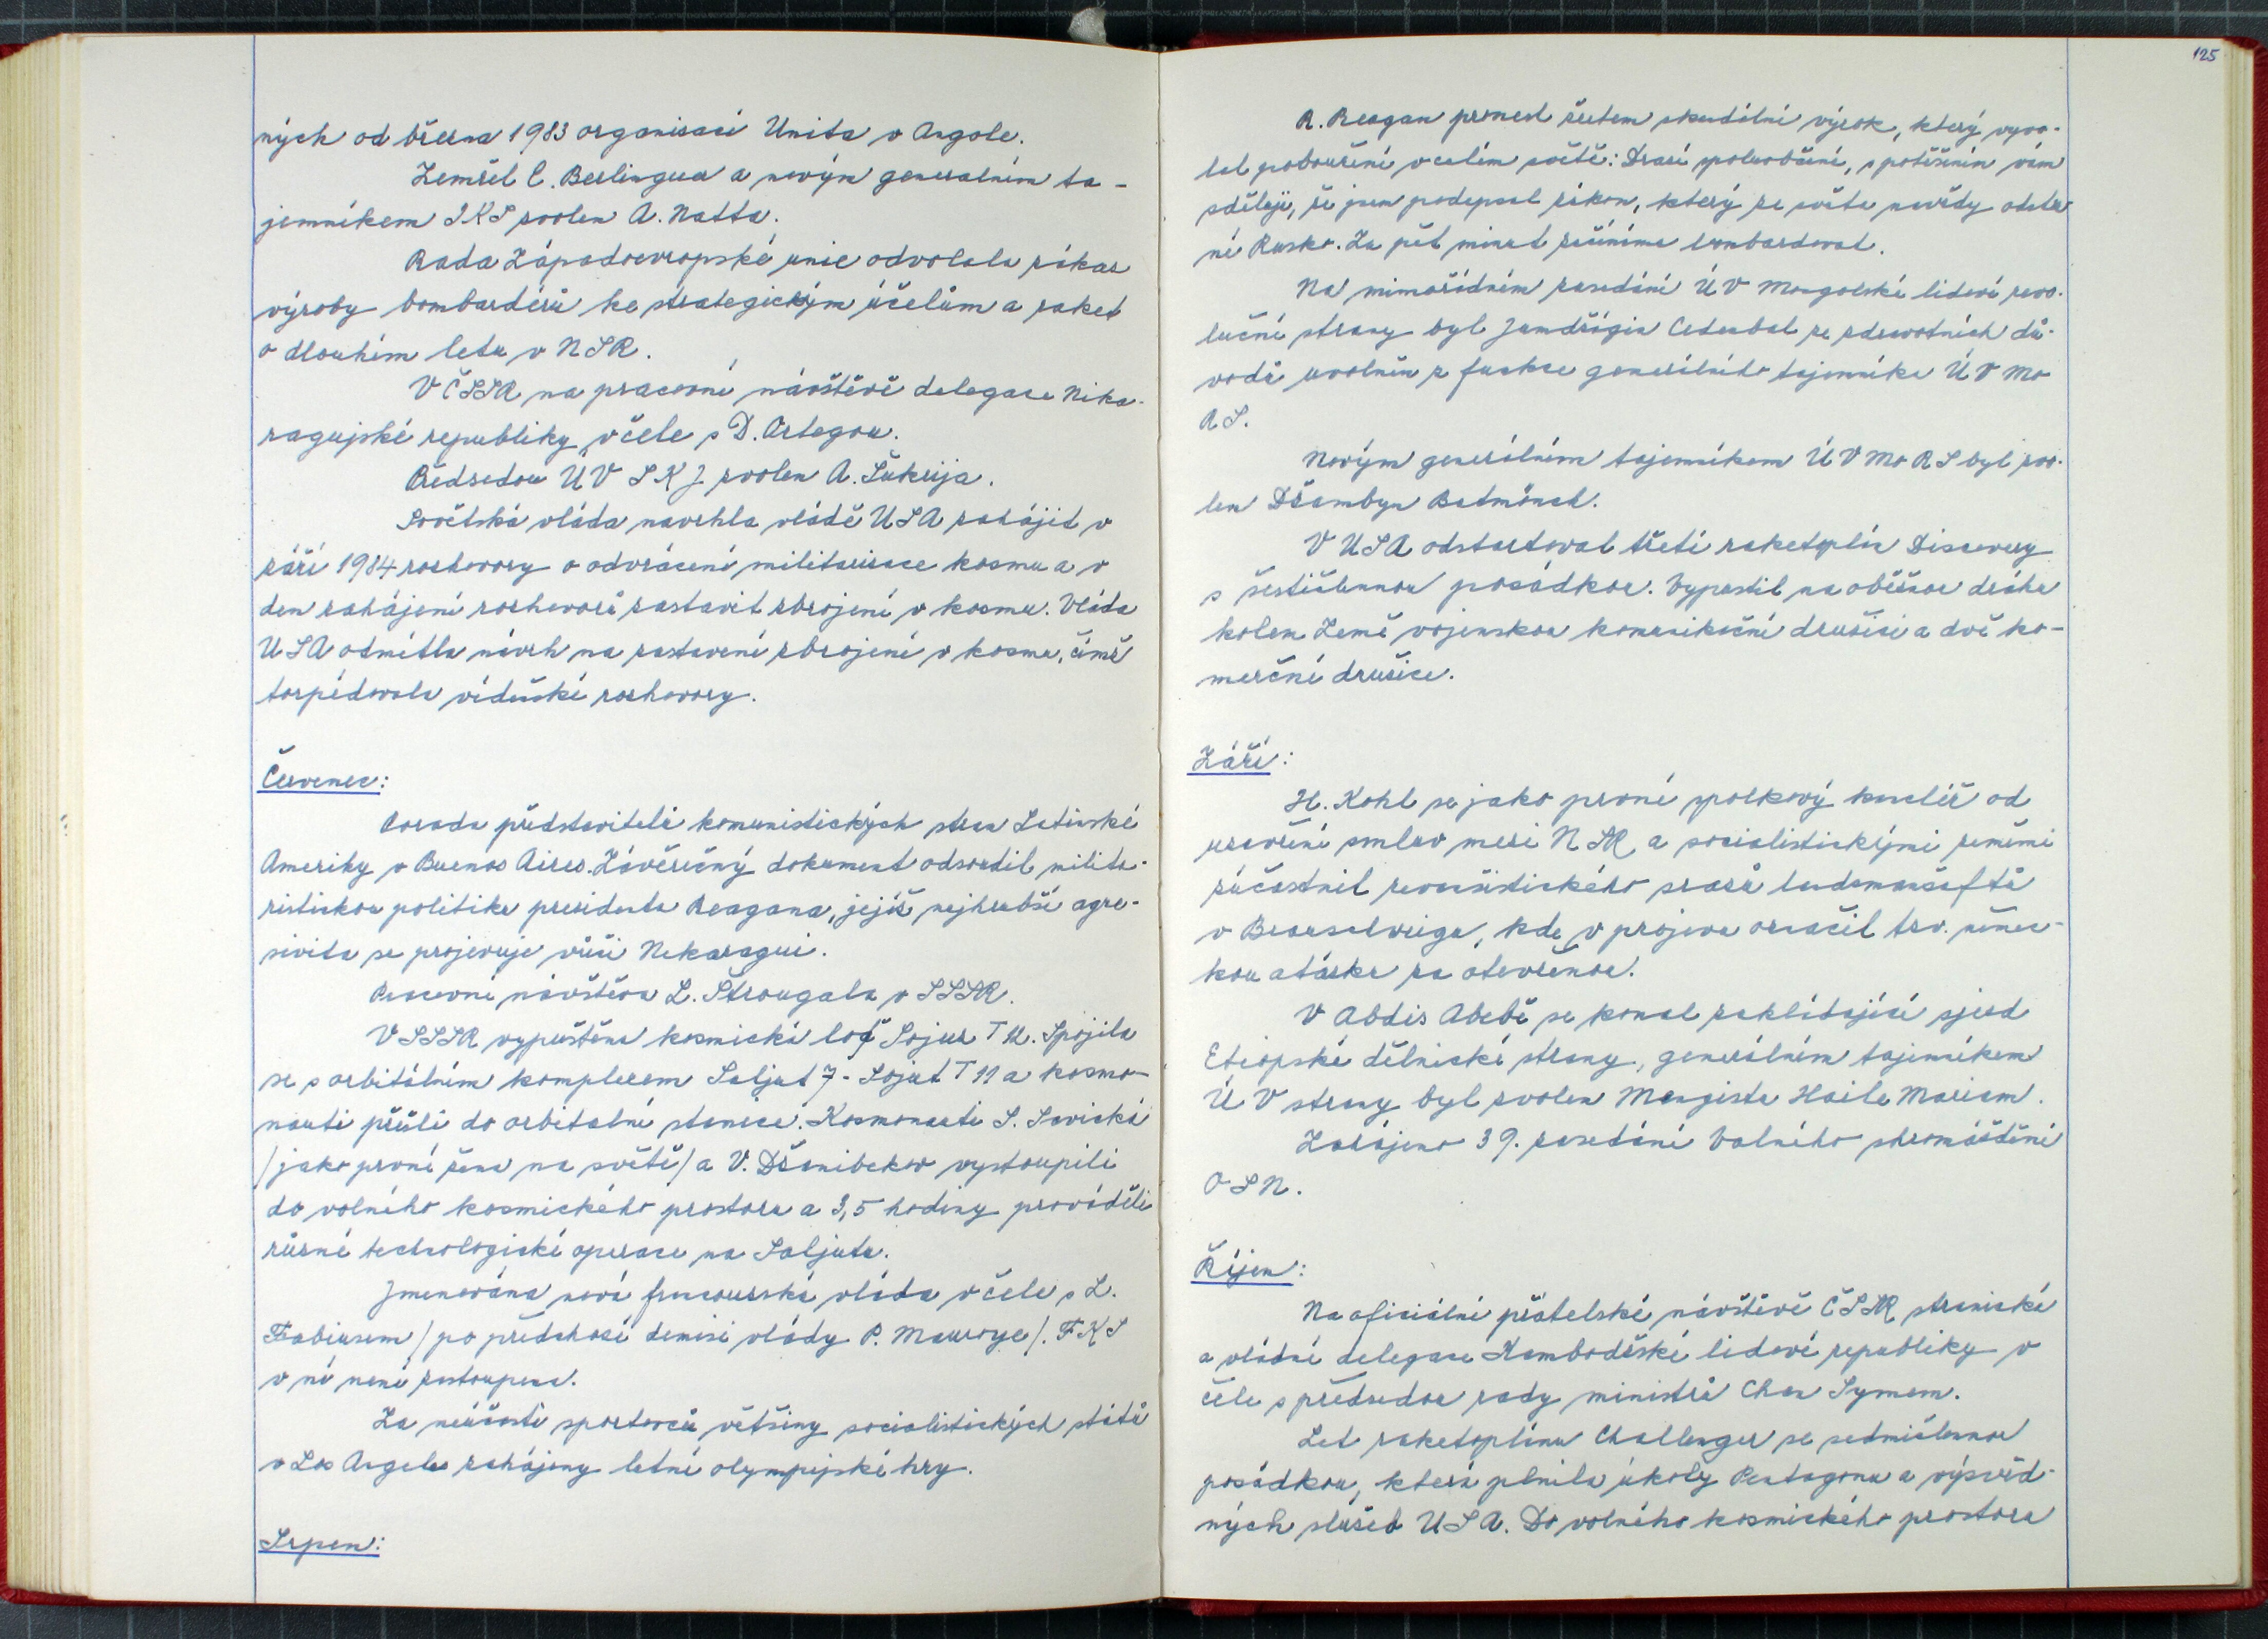 ných od března 1983 organisací Unita v Angole.
Zemřel E. Berlinguer a novým generálním ta-
jemníkem IKS zvolen A. Natta.
Rada Západoevropské unie odvolala zákaz
výroby bombardérů ke strategickým účelům a raket
o dlouhém letu v NSR.
V ČSSR na pracovní návštěvě delegace Nika-
ragujské republiky v čele s D. Ortegou.
Předsedou ÚV SKJ zvolen A. Šukrija.
Sovětská vláda navrhla vládě USA zahájit v
září 1984 rozhovory o odvrácení militarizace kosmu a v
den zahájení rozhovorů zastavit zbrojení v kosmu. Vláda
USA odmítla návrh na zastavení zbrojení v kosmu, čímž
torpédovala vídeňské rozhovory.
Červenec:
Porada představitelů komunistických stran Latinské
Ameriky v Buenos Aires. Závěrečný dokument odsoudil milita-
ristickou politiku presidenta Reagana, jejíž nejhrubší agre-
sivita se projevuje vůči Nekaragui.
Pracovní návštěva L. Štrougala v SSSR.
V SSSR vypuštěna kosmická loď Sojuz T 12. Spojila
se s orbitálním komplexem Saljut 7 - Sojut T 11 a kosmo-
nauti přešli do orbitalní stanice. Kosmonauti S. Savická
/jako první žena na světě/ a V. Džanibekov vystoupili
do volného kosmického prostoru a 3,5 hodiny prováděli
různé technologické operace na Saljutu.
Jmenována nová francouzská vláda v čele s L.
Fabiusem /po předchozí demisi vlády P. Mauroye/. FKS
v ní není zastoupena.
Za neúčasti sportovců většiny socialistických států
v Los Angeles zahájeny letní olympijské hry.
Srpen:
125
R. Reagan pronesl žertem skandální výrok, který vyvo-
lal pobouření v celém světě: Drazí spoluobčané, s potěšením vám
sděluji, že jsem podepsal zákon, který ze světa navždy odstra
ní Rusko. Za pět minut začínáme bombardovat.
Na mimořádném zasedání ÚV Mongolské lidové revo-
luční strany byl Jumdžágin Cedenbal ze zdravotních dů-
vodů uvolněn z funkce generálního tajemníka ÚV Mo
RS.
Novým generálním tajemníkem ÚV MoRS byl zvo-
len Džambyn Batmönch.
V USA odstartoval třetí raketoplán Discovery
s šestičlennou posádkou. Vypustil na oběžnou dráhu
kolem Země vojenskou komunikační družici a dvě ko-
merční družice.
Září:
H. Kohl se jako první spolkový kancléř od
uzavření smluv mezi NSR a socialistickými zeměmi
zúčastnil revanšistického srazu landsmanšaftů
v Braunschveigu, kde v projevu označil tzv. němec-
kou otázku za otevřenou.
V Abdis Abebě se konal zakládající sjezd
Etiopské dělnické strany, generálním tajemníkem
ÚV strany byl zvolen Mengistu Haile Mariam.
Zahájeno 39. zasedání Valného shromáždění
OSN.
Říjen:
Na oficiální přátelské návštěvě ČSSR stranická
a vládní delegace Kambodžské lidové republiky v
čele s předsedou rady ministrů Chan Symem.
Let raketoplánu Challenger se sedmičlennou
posádkou, která plnila úkoly Pentagonu a výzvěd-
ných služeb USA. Do volného kosmického prostoru